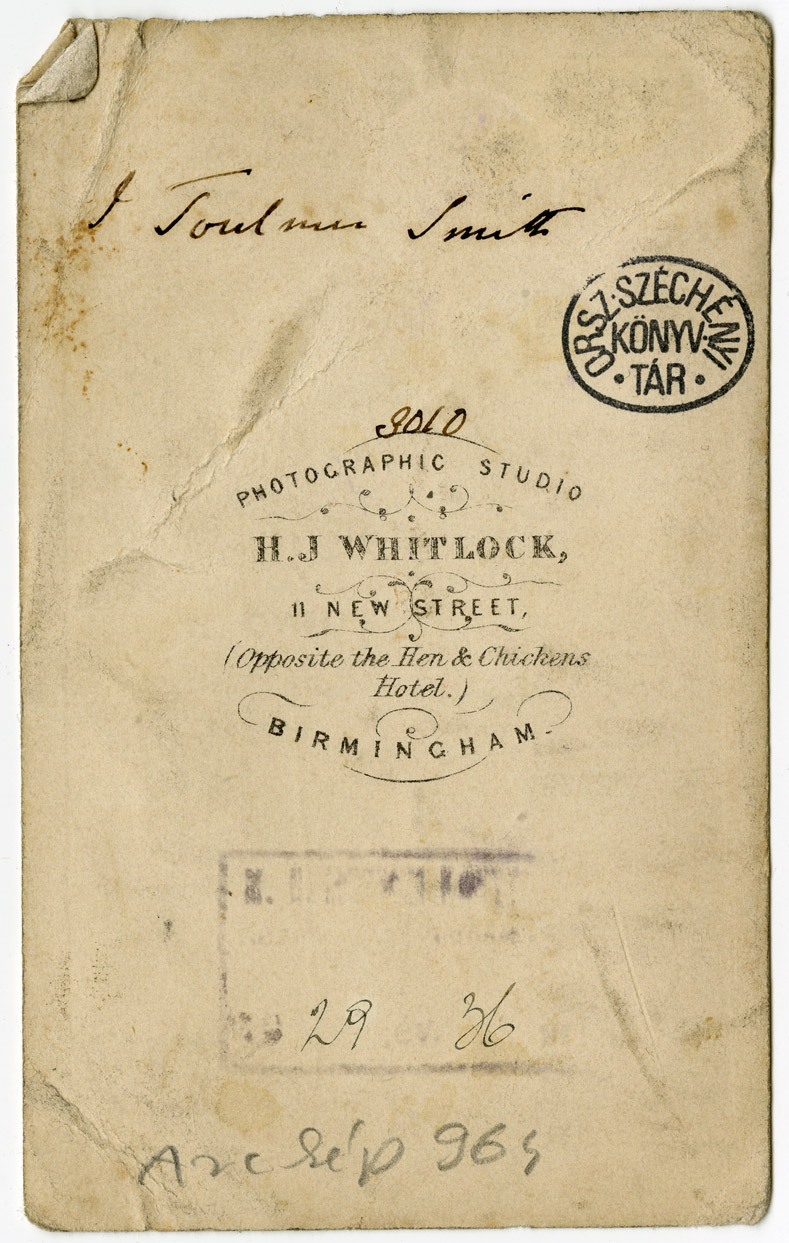 J Toulmin Smith
ORSZ·SZÉCHÉNYI
KÖNYV-
·TÁR·
3010
PHOTOGRAPHIC STUDIO
H.J WHITLOCK,
11 NEW STREET,
(Opposite the Hen & Chickens
Hotel.)
BIRMINGHAM.
29 36
Arckép 965